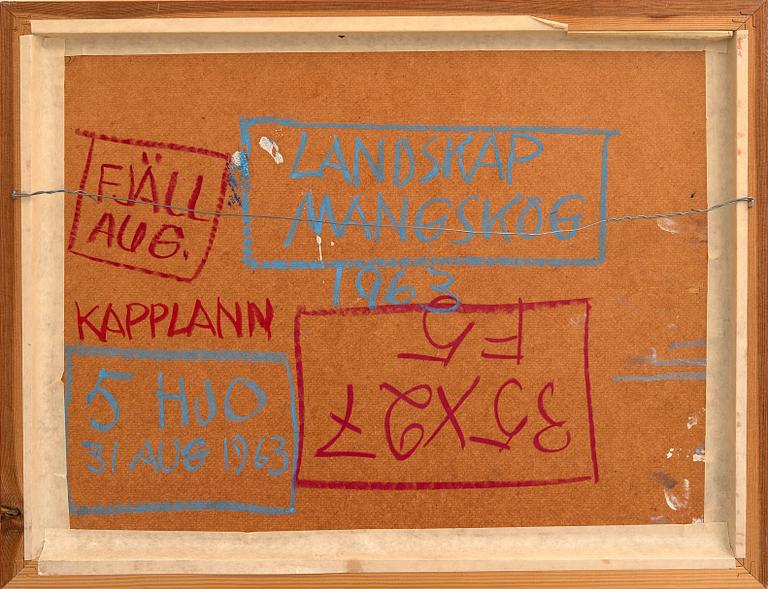 FJÄLL
AUG.
LANDSKAP
MANGSKOG
1963
KAPPLANN
5 HJO
31 AUG 1963
35X27
F5